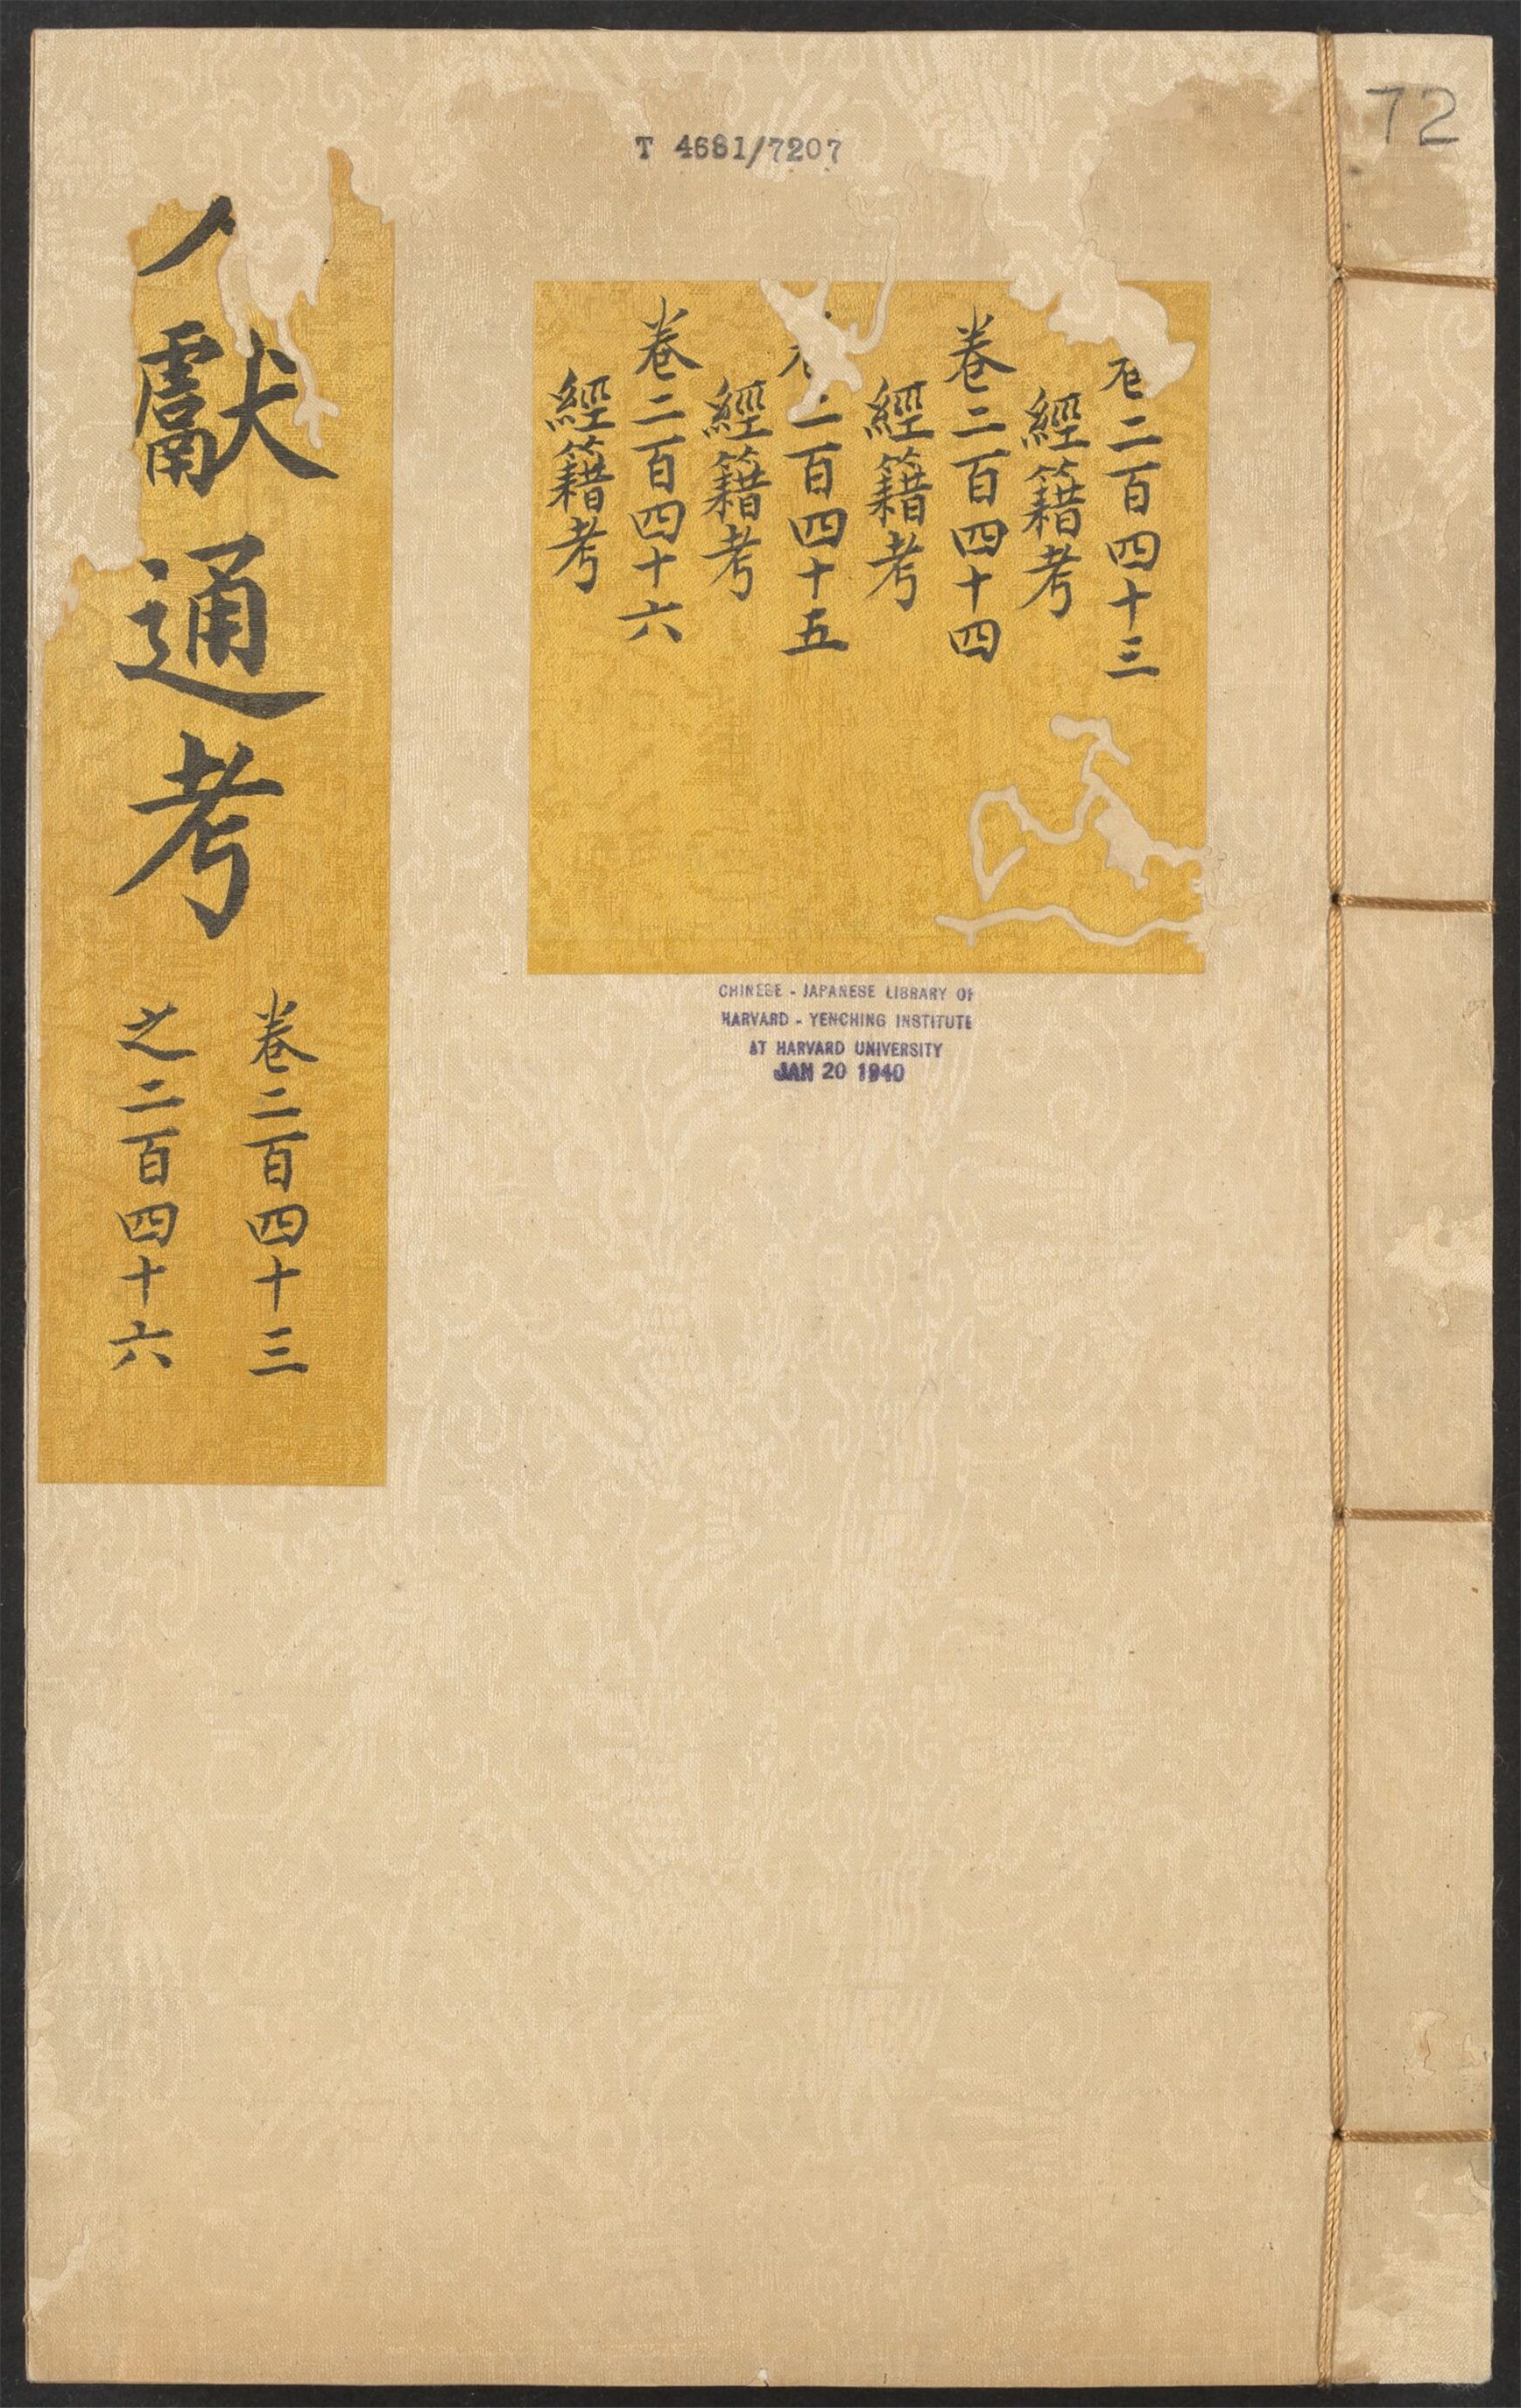 72
T 4681/7207
二百四十三
經籍考
卷二百四十四
經籍考
二百四十五
經籍考
卷二百四十六
經籍考
獻通考
卷二百四十三
之二百四十六
CHINESE - JAPANESE LIBRARY OF
HARVARD - YENCHING INSTITUTE
AT HARVARD UNIVERSITY
JAN 20 1940